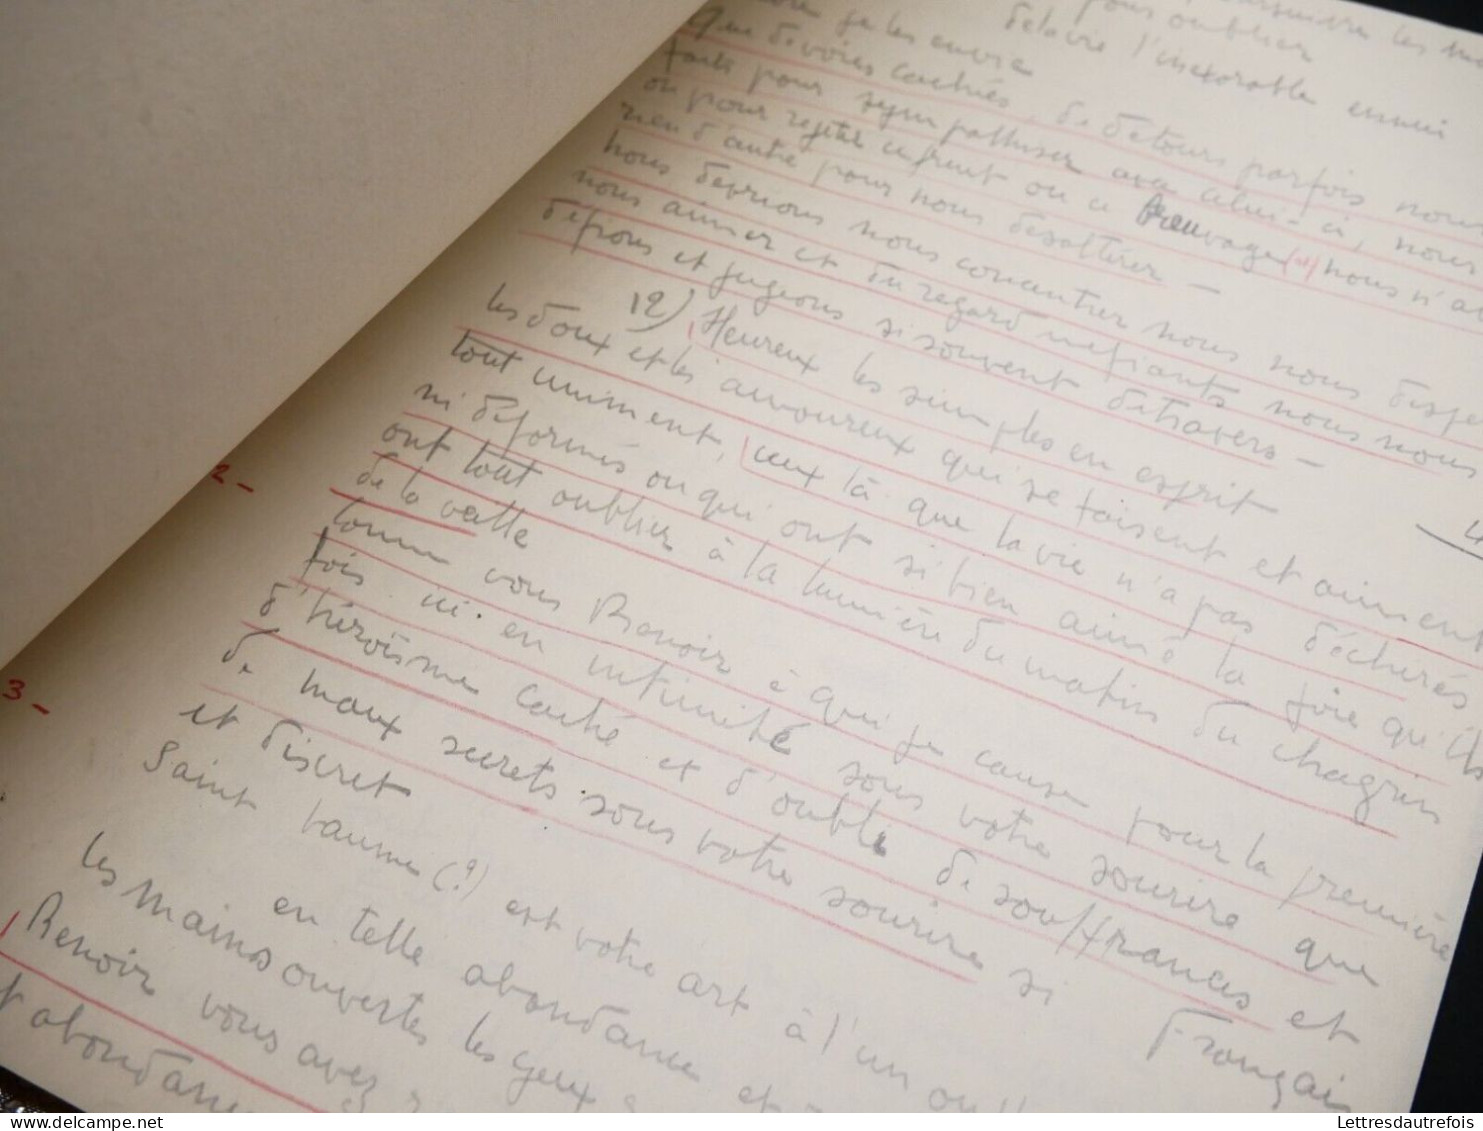 pour oublier
je les envie de la vie l'inexorable ennui
Que de voies cachées, de détours parfois nous
faits pour sympathiser avec celui-ci, nous
ou pour rejeter ou ce breuvage (et) nous n'a
rien d'autre pour nous désaltérer -
nous devrions nous nous nous
nous aimer et du regard méfiants nous nous
défions et jugeons si souvent de travers -
12) Heureux les simples en esprit
les doux et les amoureux qui se taisent et aiment
tout uniment, ceux là que la vie n'a pas déchirés
ni déformés ou qui ont si bien aimé la joie qu'ils
ont tout oublier à la lumière du matin du chagrin
2 -
de la veille
comme vous Renoir à qui je cause pour la première
fois ici en intimité sous votre sourire que
d'héroïsme caché et d'oubli de souffrances et
3 -
de maux secrets sous votre sourire si français
et discret
Saint (?) est votre art à l'un
en telle abondance et
les mains ouvertes les yeux
Renoir vous avez
abondance
Lettresdautrefois